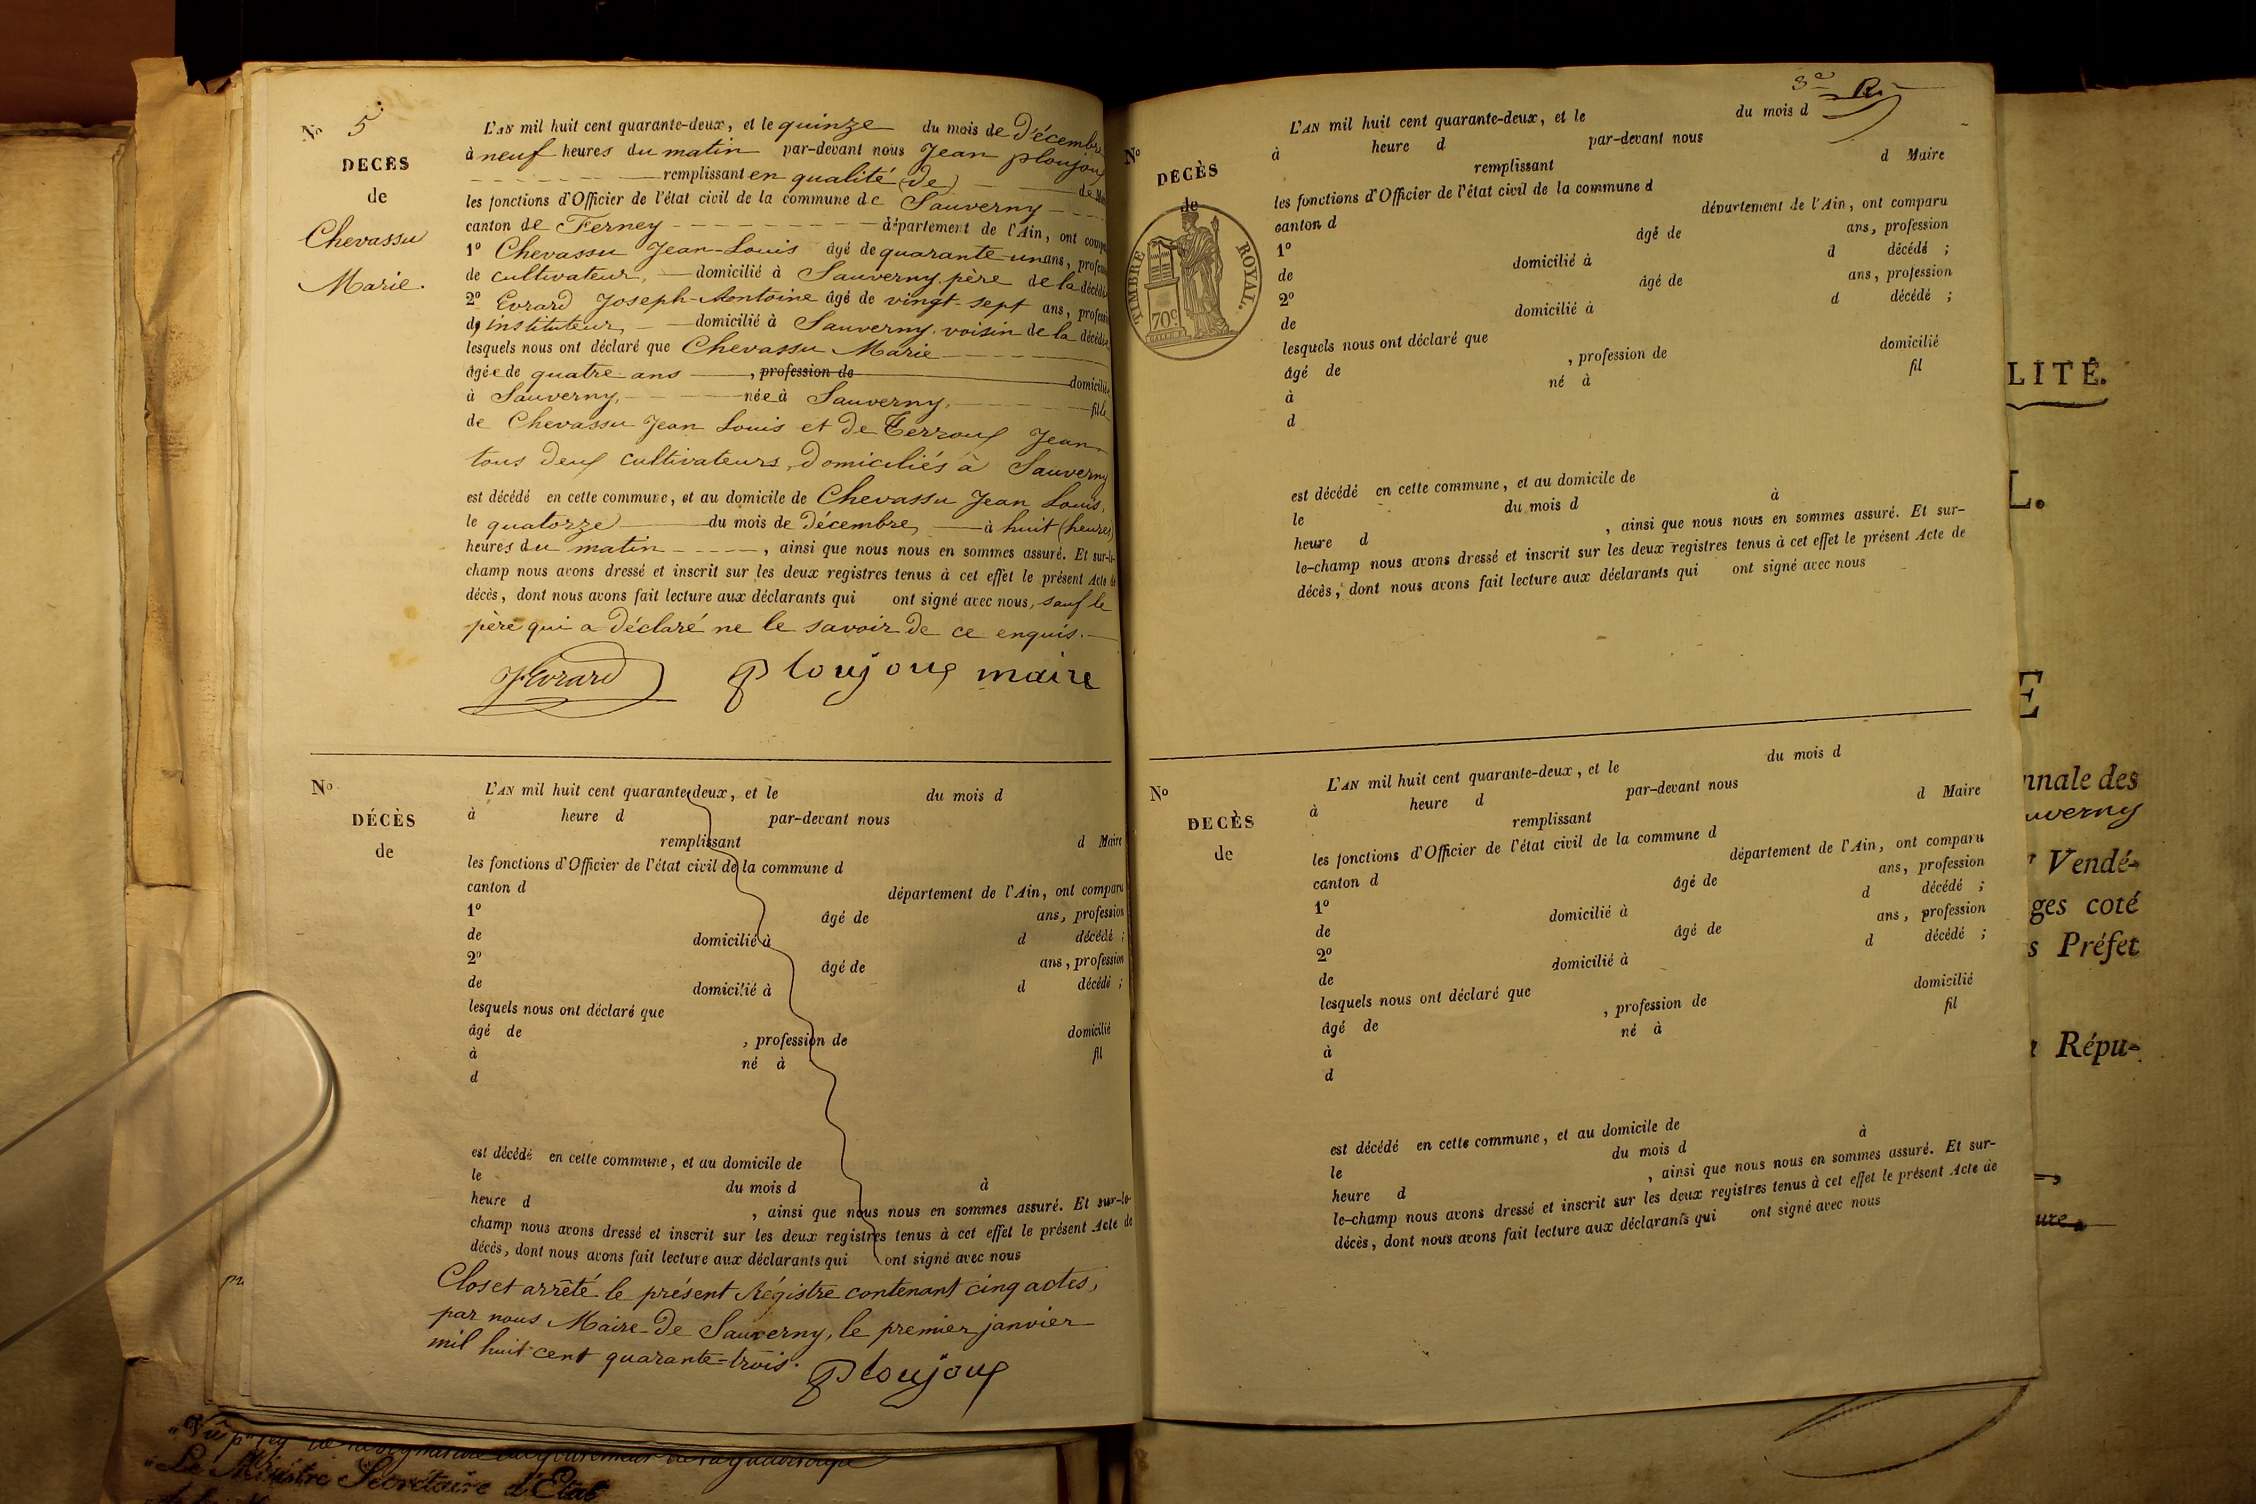 N° 5
DÉCÈS
de
Chevassu
Marie.
L'AN mil huit cent quarante-deux, et le quinze du mois de Décembre
à neuf heures du matin par-devant nous Jean ploujoux
remplissant en qualité (de) de Maire
les fonctions d'Officier de l'état civil de la commune de Sauverny
canton de Ferney département de l'Ain, ont comparu
1° Chevassu Jean-Louis âgé de quarante-un ans, profession
de cultivateur, domicilié à Sauverny, père de la décédée
2° Evrard Joseph-Antoine âgé de vingt-sept ans, profession
d'instituteur, domicilié à Sauverny, voisin de la décédée
lesquels nous ont déclaré que Chevassu Marie
âgée de quatre ans, profession de domiciliée
à Sauverny, née à Sauverny, fille
de Chevassu Jean Louis et de Terroux Jean
tous deux cultivateurs, domiciliés à Sauverny
est décédé en cette commune, et au domicile de Chevassu Jean Louis,
le quatorze du mois de Décembre, à huit (heures)
heures du matin, ainsi que nous nous en sommes assuré. Et sur-le-
champ nous avons dressé et inscrit sur les deux registres tenus à cet effet le présent Acte de
décès, dont nous avons fait lecture aux déclarants qui ont signé avec nous, sauf le
père qui a déclaré ne le savoir de ce enquis.
JEvrard Ploujoux maire
N°
DÉCÈS
de
L'AN mil huit cent quarante-deux, et le du mois d
à heure d par-devant nous
remplissant d Maire
les fonctions d'Officier de l'état civil de la commune d
canton d département de l'Ain, ont comparu
1° âgé de ans, profession
de domicilié à d décédé ;
2° âgé de ans, profession
de domicilié à d décédé ;
lesquels nous ont déclaré que
âgé de , profession de domicilié
à né à fil
d
est décédé en cette commune, et au domicile de
le du mois d à
heure d , ainsi que nous nous en sommes assuré. Et sur-le-
champ nous avons dressé et inscrit sur les deux registres tenus à cet effet le présent Acte de
décès, dont nous avons fait lecture aux déclarants qui ont signé avec nous
Clos et arrêté le présent Régistre contenant cinq actes,
par nous Maire de Sauverny, le premier janvier
mil huit cent quarante-trois.
Ploujoux
3e R
N°
DÉCÈS
de
TIMBRE ROYAL.
70c
L'AN mil huit cent quarante-deux, et le du mois d
à heure d par-devant nous
remplissant d Maire
les fonctions d'Officier de l'état civil de la commune d
canton d département de l'Ain, ont comparu
1° âgé de ans, profession
de domicilié à d décédé ;
2° âgé de ans, profession
de domicilié à d décédé ;
lesquels nous ont déclaré que
âgé de , profession de domicilié
à né à fil
d
est décédé en cette commune, et au domicile de
le du mois d à
heure d , ainsi que nous nous en sommes assuré. Et sur-
le-champ nous avons dressé et inscrit sur les deux registres tenus à cet effet le présent Acte de
décès, dont nous avons fait lecture aux déclarants qui ont signé avec nous
N°
DECÈS
de
L'AN mil huit cent quarante-deux, et le du mois d
à heure d par-devant nous
remplissant d Maire
les fonctions d'Officier de l'état civil de la commune d
canton d département de l'Ain, ont comparu
1° âgé de ans, profession
de domicilié à d décédé ;
2° âgé de ans, profession
de domicilié à d décédé ;
lesquels nous ont déclaré que
âgé de , profession de domicilié
à né à fil
d
est décédé en cette commune, et au domicile de
le du mois d à
heure d , ainsi que nous nous en sommes assuré. Et sur-
le-champ nous avons dressé et inscrit sur les deux registres tenus à cet effet le présent Acte de
décès, dont nous avons fait lecture aux déclarants qui ont signé avec nous
LITÉ.
L.
E
nnale des
uverny
Vendé-
ges coté
s Préfet
Répu-
ure
Le Ministre Secrétaire d'Etat